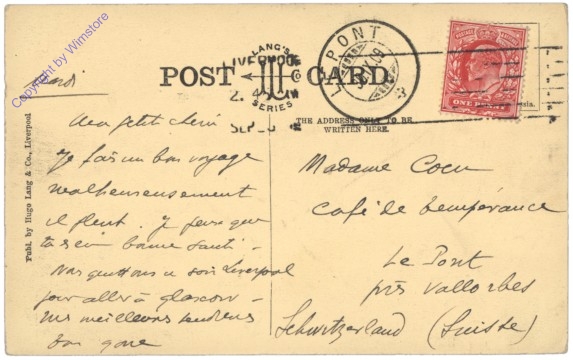 Copyright by Wimstore
LANG'S
LIVERPOOL
SERIES
POST CARD.
SEP 26
LE PONT
ONE PENNY
THE ADDRESS ONLY TO BE
WRITTEN HERE.
Publ. by Hugo Lang & Co., Liverpool
mardi
Mon petit chéri
Je fais un bon voyage
malheureusement
il pleut. J'espère que
tu es en bonne santé -
Nous quittons ce soir Liverpool
pour aller à glascow -
mes meilleures tendresses
ton
Madame Coen
Café de tempérance
Le Pont
près Vallorbes
Schwitzerland (Suisse)